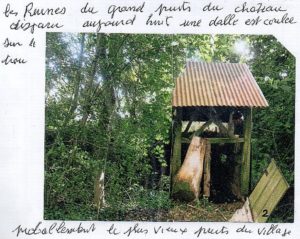 les Ruines du grand puits du chateau
disparu aujourd huit une dalle est coulée
sur le
trou
2
probablement le plus vieux puits du village